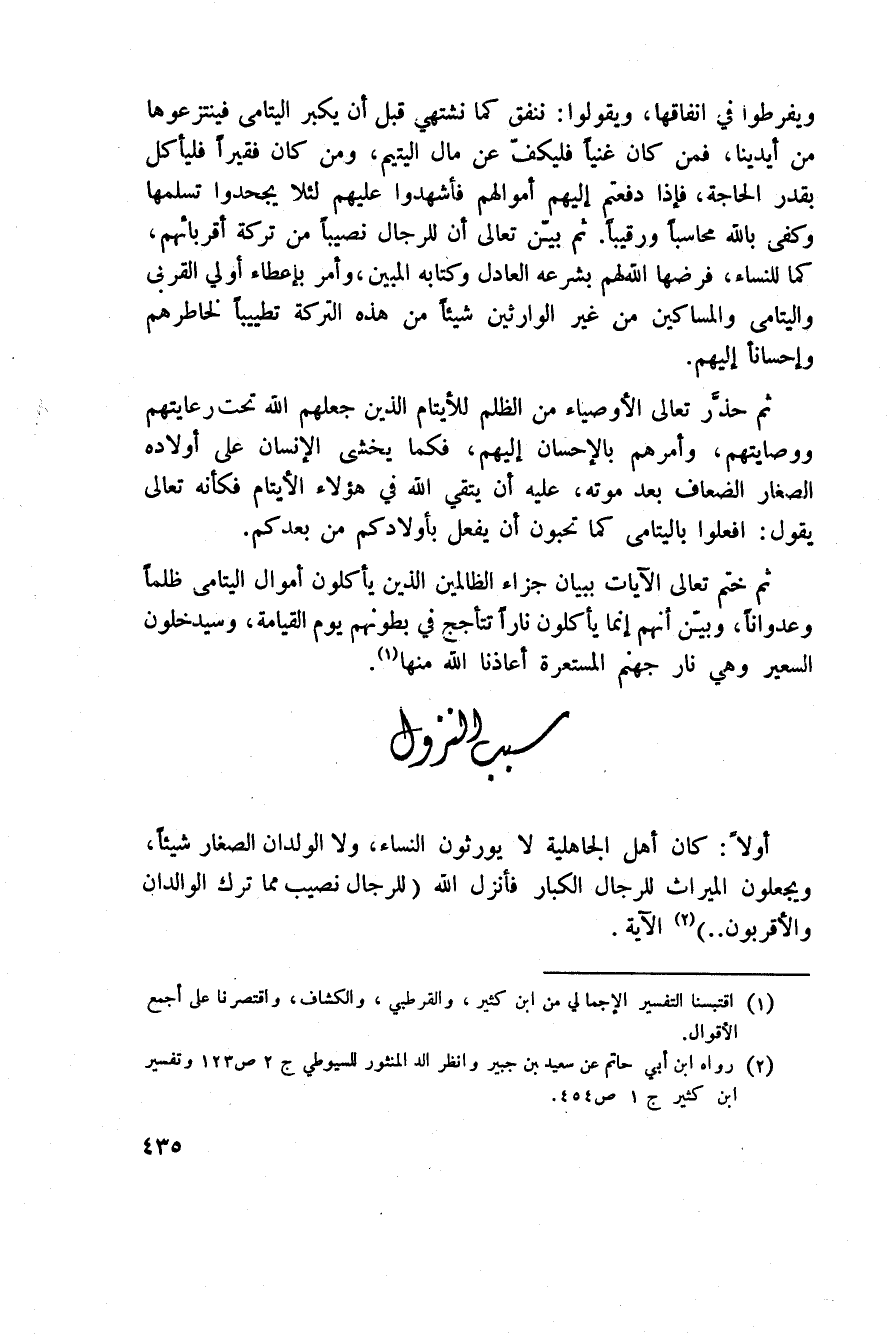 ويفرطوا في انفاقها، ويقولوا: ننفق كما نشتهي قبل أن يكبر اليتامى فينتزعوها
من أيدينا، فمن كان غنياً فليكفّ عن مال اليتيم، ومن كان فقيراً فليأكل
بقدر الحاجة، فإذا دفعتم إليهم أموالهم فأشهدوا عليهم لئلا يجحدوا تسلمها
وكفى بالله محاسباً ورقيباً. ثم بيّن تعالى أن للرجال نصيباً من تركة أقربائهم،
كما للنساء، فرضها الله لهم بشرعه العادل وكتابه المبين، وأمر بإعطاء أولي القربى
واليتامى والمساكين من غير الوارثين شيئاً من هذه التركة تطييباً لخاطرهم
وإحساناً إليهم.
ثم حذَّر تعالى الأوصياء من الظلم للأيتام الذين جعلهم الله تحت رعايتهم
ووصايتهم، وأمرهم بالإحسان إليهم، فكما يخشى الإنسان على أولاده
الصغار الضعاف بعد موته، عليه أن يتقي الله في هؤلاء الأيتام فكأنه تعالى
يقول: افعلوا باليتامى كما تحبون أن يفعل بأولادكم من بعدكم.
ثم ختم تعالى الآيات ببيان جزاء الظالمين الذين يأكلون أموال اليتامى ظلماً
وعدواناً، وبيّن أنهم إنما يأكلون ناراً تتأجج في بطونهم يوم القيامة، وسيدخلون
السعير وهي نار جهنم المستعرة أعاذنا الله منها(١).
سبب النزول
أولاً: كان أهل الجاهلية لا يورثون النساء، ولا الولدان الصغار شيئاً،
ويجعلون الميراث للرجال الكبار فأنزل الله (للرجال نصيب مما ترك الوالدان
والأقربون..)(٢) الآية .
(١) اقتبسنا التفسير الإجمالي من ابن كثير ، والقرطبي ، والكشاف، واقتصرنا على أجمع
الأقوال.
(٢) رواه ابن أبي حاتم عن سعيد بن جبير وانظر الد المنثور للسيوطي ج ٢ ص١٢٣ وتفسير
ابن كثير ج ١ ص٤٥٤.
٤٣٥